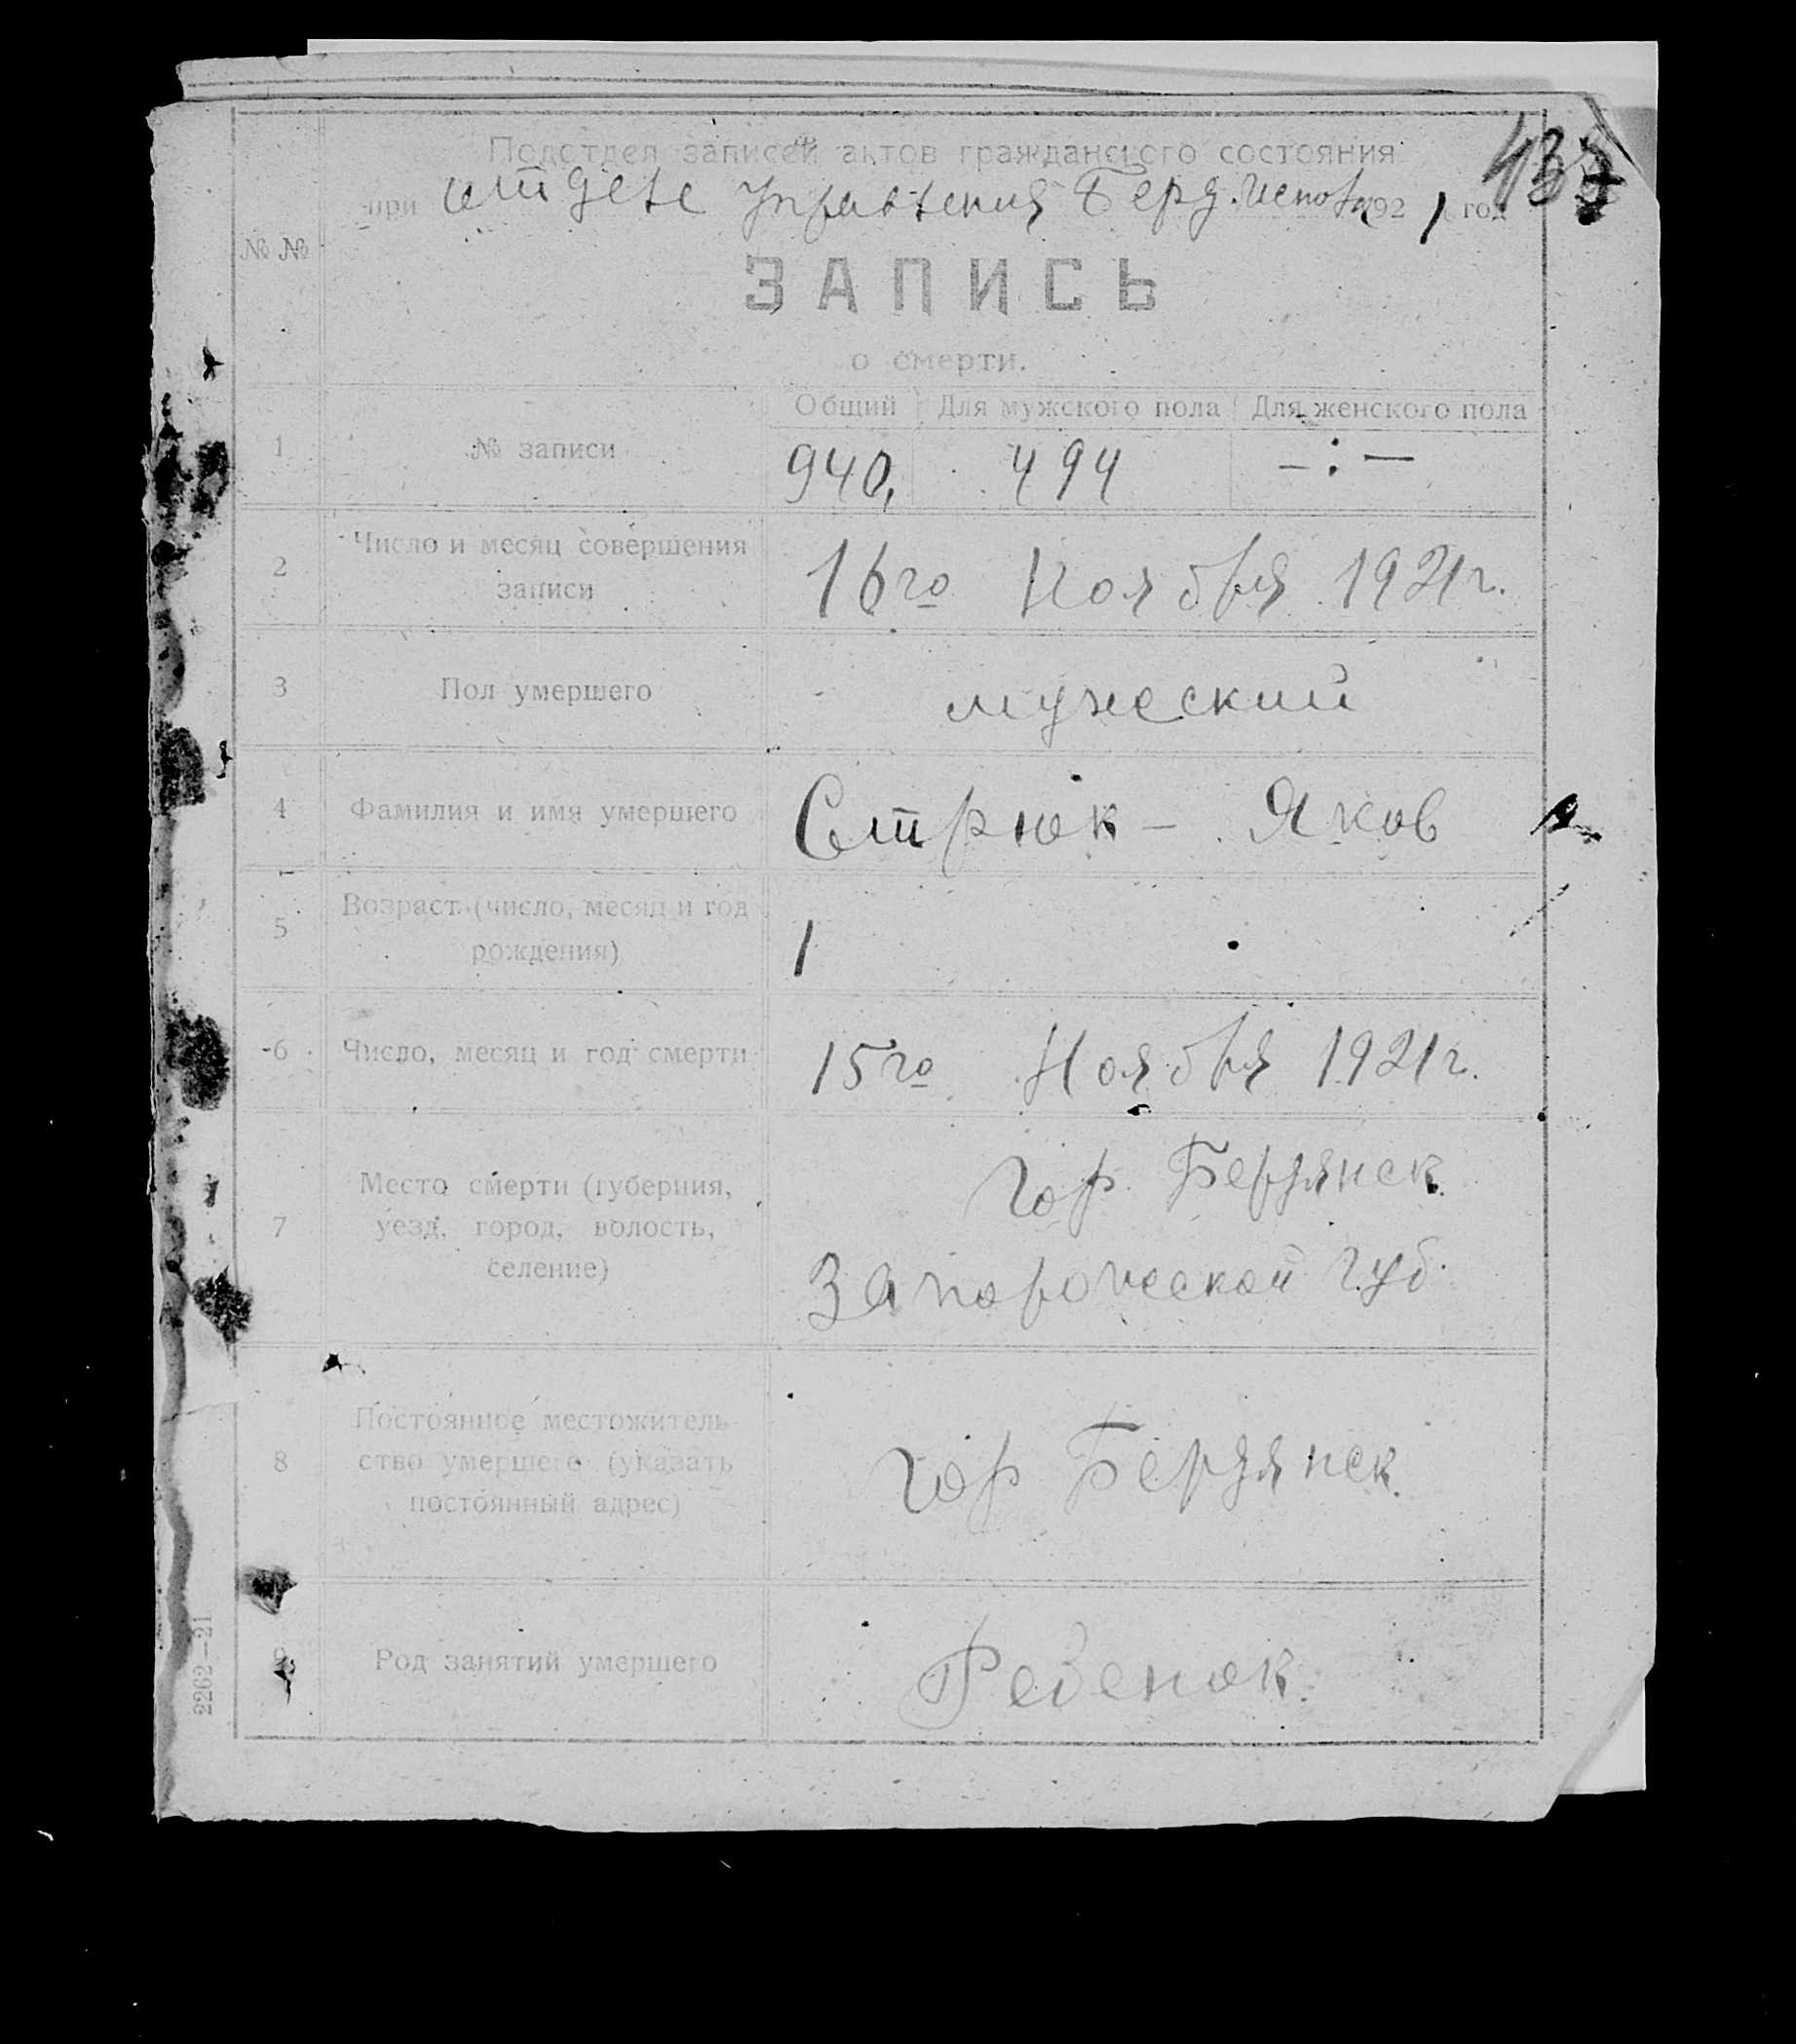 Подотдел записей актов гражданского состояния
при отделе управления Берд. Испол 1921 год
№ №
ЗАПИСЬ
о смерти.
Общий Для мужского пола Для женского пола
1 № записи 940, 494 —:—
2 Число и месяц совершения
записи 16го Ноября 1921г.
3 Пол умершего мужеский
4 Фамилия и имя умершего Стрюк — Яков
5 Возраст (число, месяц и год
рождения) 1
6 Число, месяц и год смерти 15го Ноября 1921г.
7 Место смерти (губерния,
уезд, город, волость,
селение)
Гор. Бердянск
Запорожской губ.
8 Постоянное местожитель-
ство умершего (указать
постоянный адрес)
гор Бердянск.
9 Род занятий умершего Ребенок.
2262—21